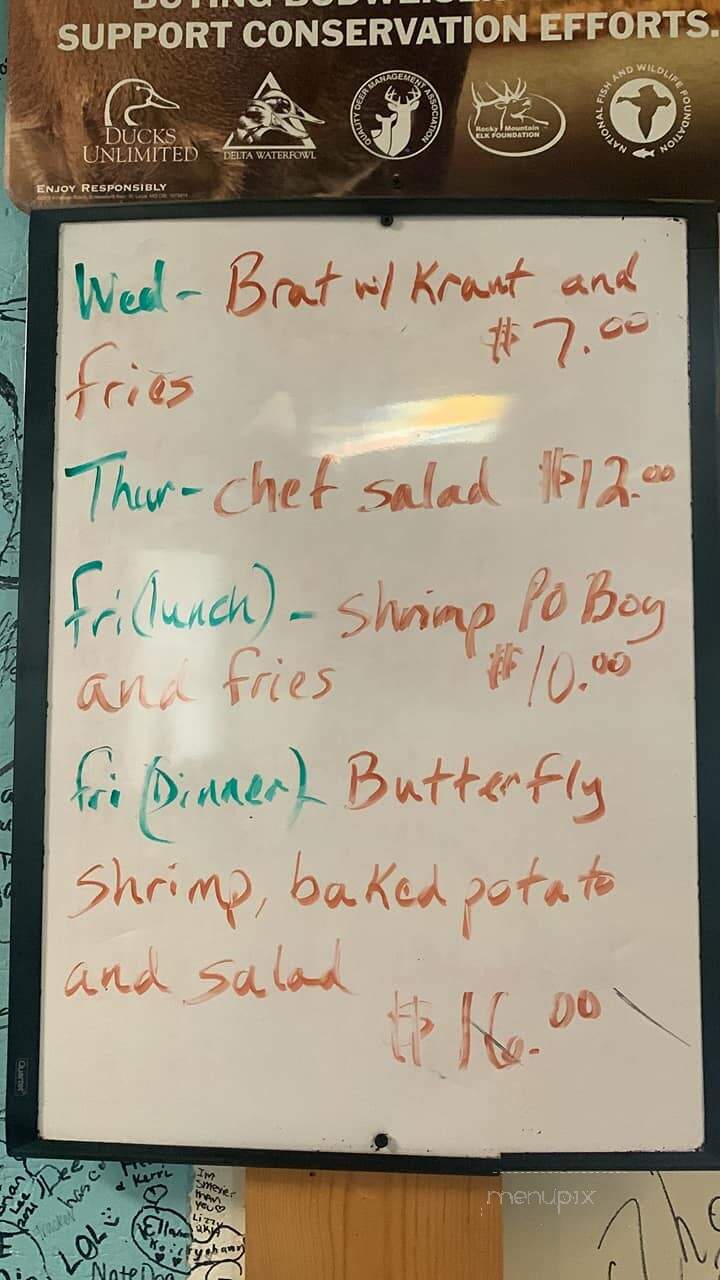 BUYING BUDWEISER
SUPPORT CONSERVATION EFFORTS.
DUCKS
UNLIMITED
DELTA WATERFOWL
QUALITY DEER MANAGEMENT ASSOCIATION
Rocky Mountain
ELK FOUNDATION
NATIONAL FISH AND WILDLIFE FOUNDATION
ENJOY RESPONSIBLY
Wed- Brat w/ Kraut and
$7.00
fries
Thur- chef salad $12.00
fri(lunch) - shrimp PO Boy
and fries $10.00
fri (Dinner) Butterfly
shrimp, baked potato
and salad
$16.00
Quartet
Kerri
LOL
IM
YOU
Lizzy
Nate
menupix